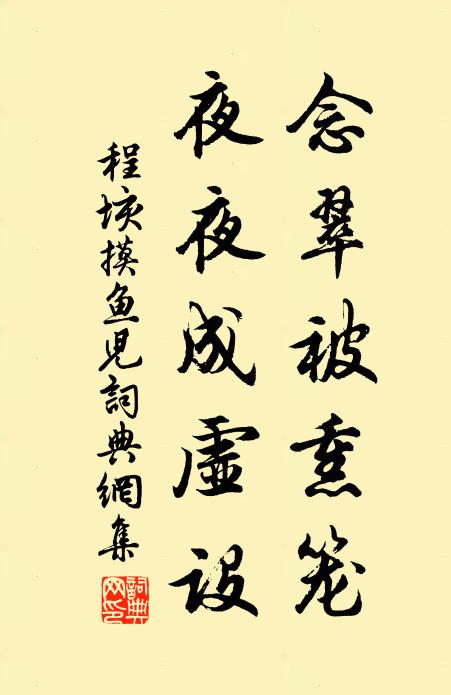 念翠被熏笼
夜夜成虚设
程垓摸鱼儿詞典網集
詞典网印